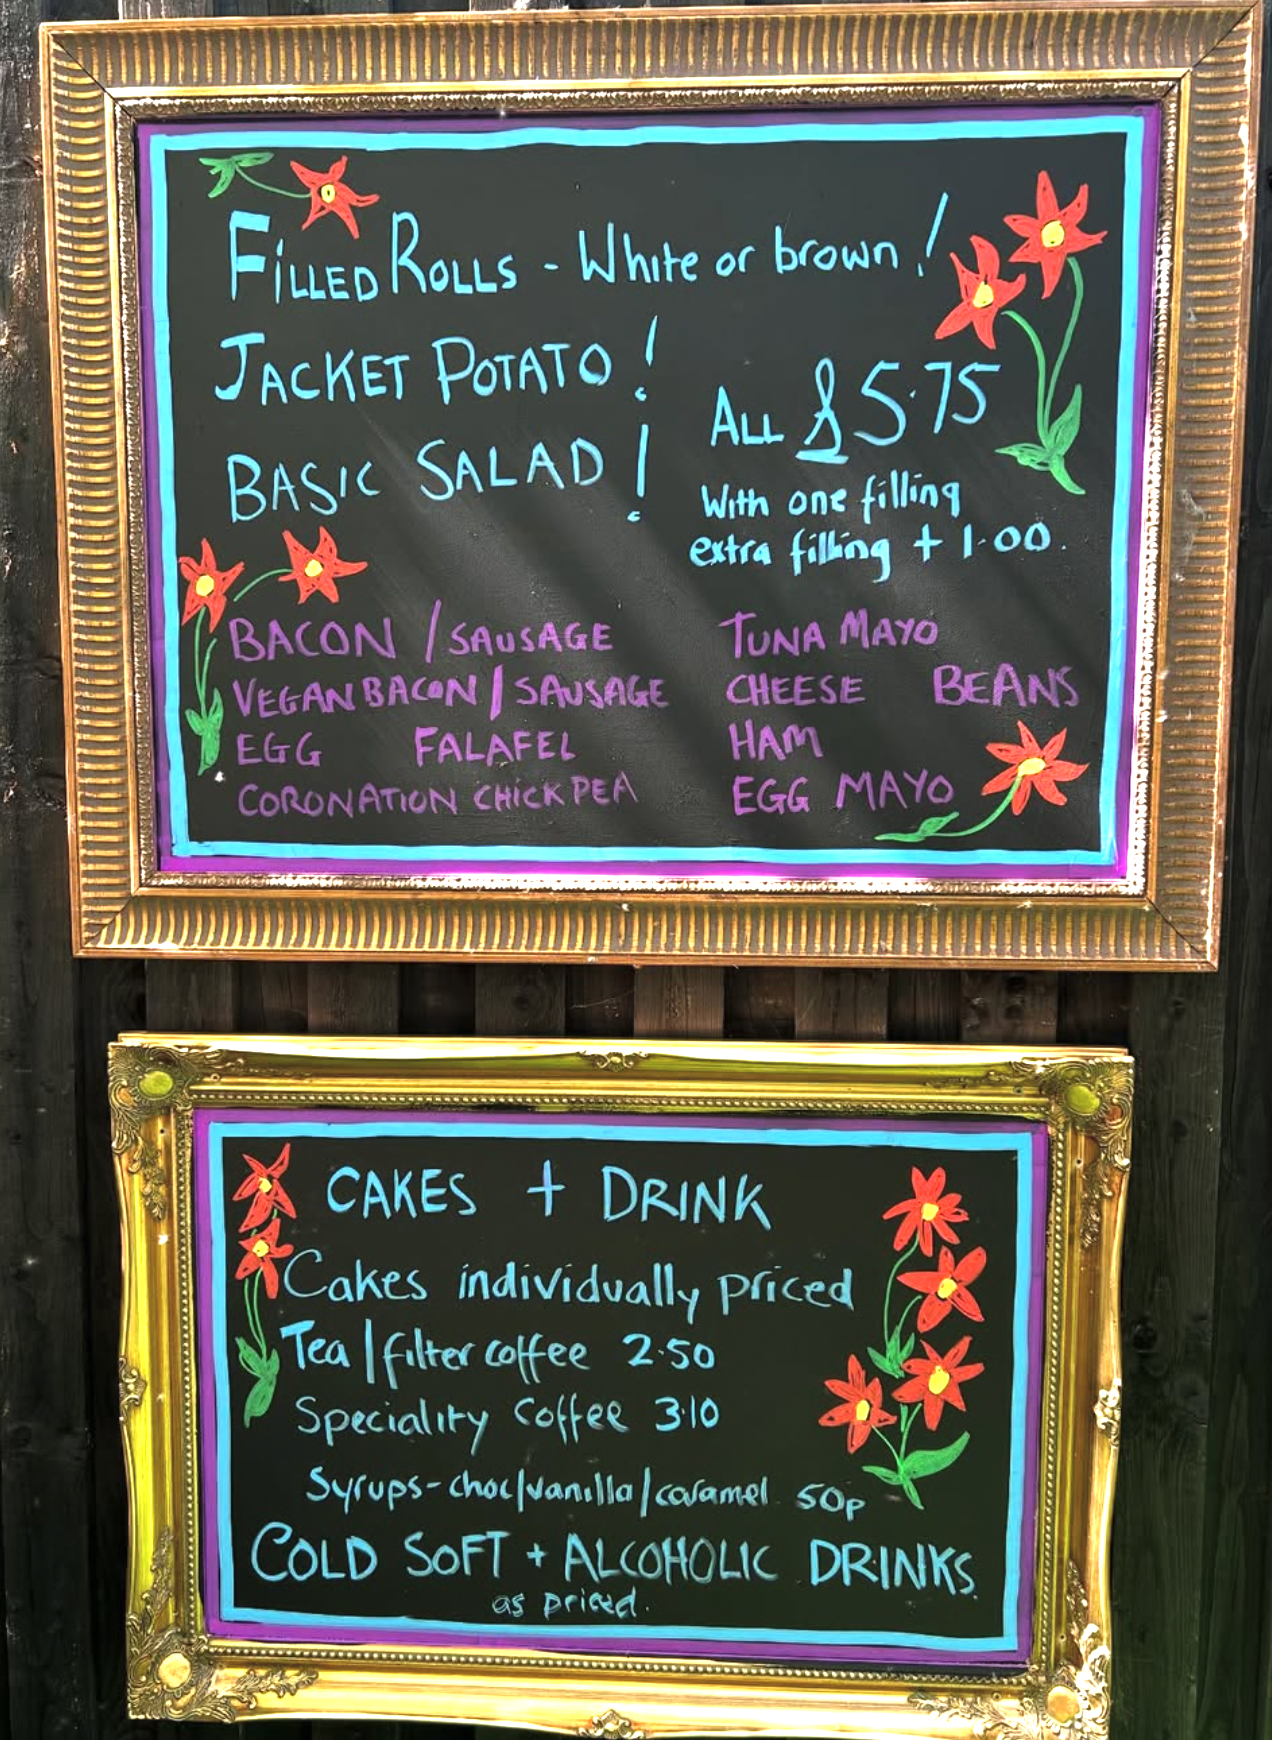 FILLED ROLLS - White or brown!
JACKET POTATO!
BASIC SALAD!
ALL £5.75
With one filling
extra filling + 1.00.
BACON / SAUSAGE
VEGAN BACON / SAUSAGE
EGG FALAFEL
CORONATION CHICKPEA
TUNA MAYO
CHEESE BEANS
HAM
EGG MAYO
CAKES + DRINK
Cakes individually priced
Tea / filter coffee 2.50
Speciality coffee 3.10
Syrups - choc/vanilla/caramel 50p
COLD SOFT + ALCOHOLIC DRINKS
as priced.